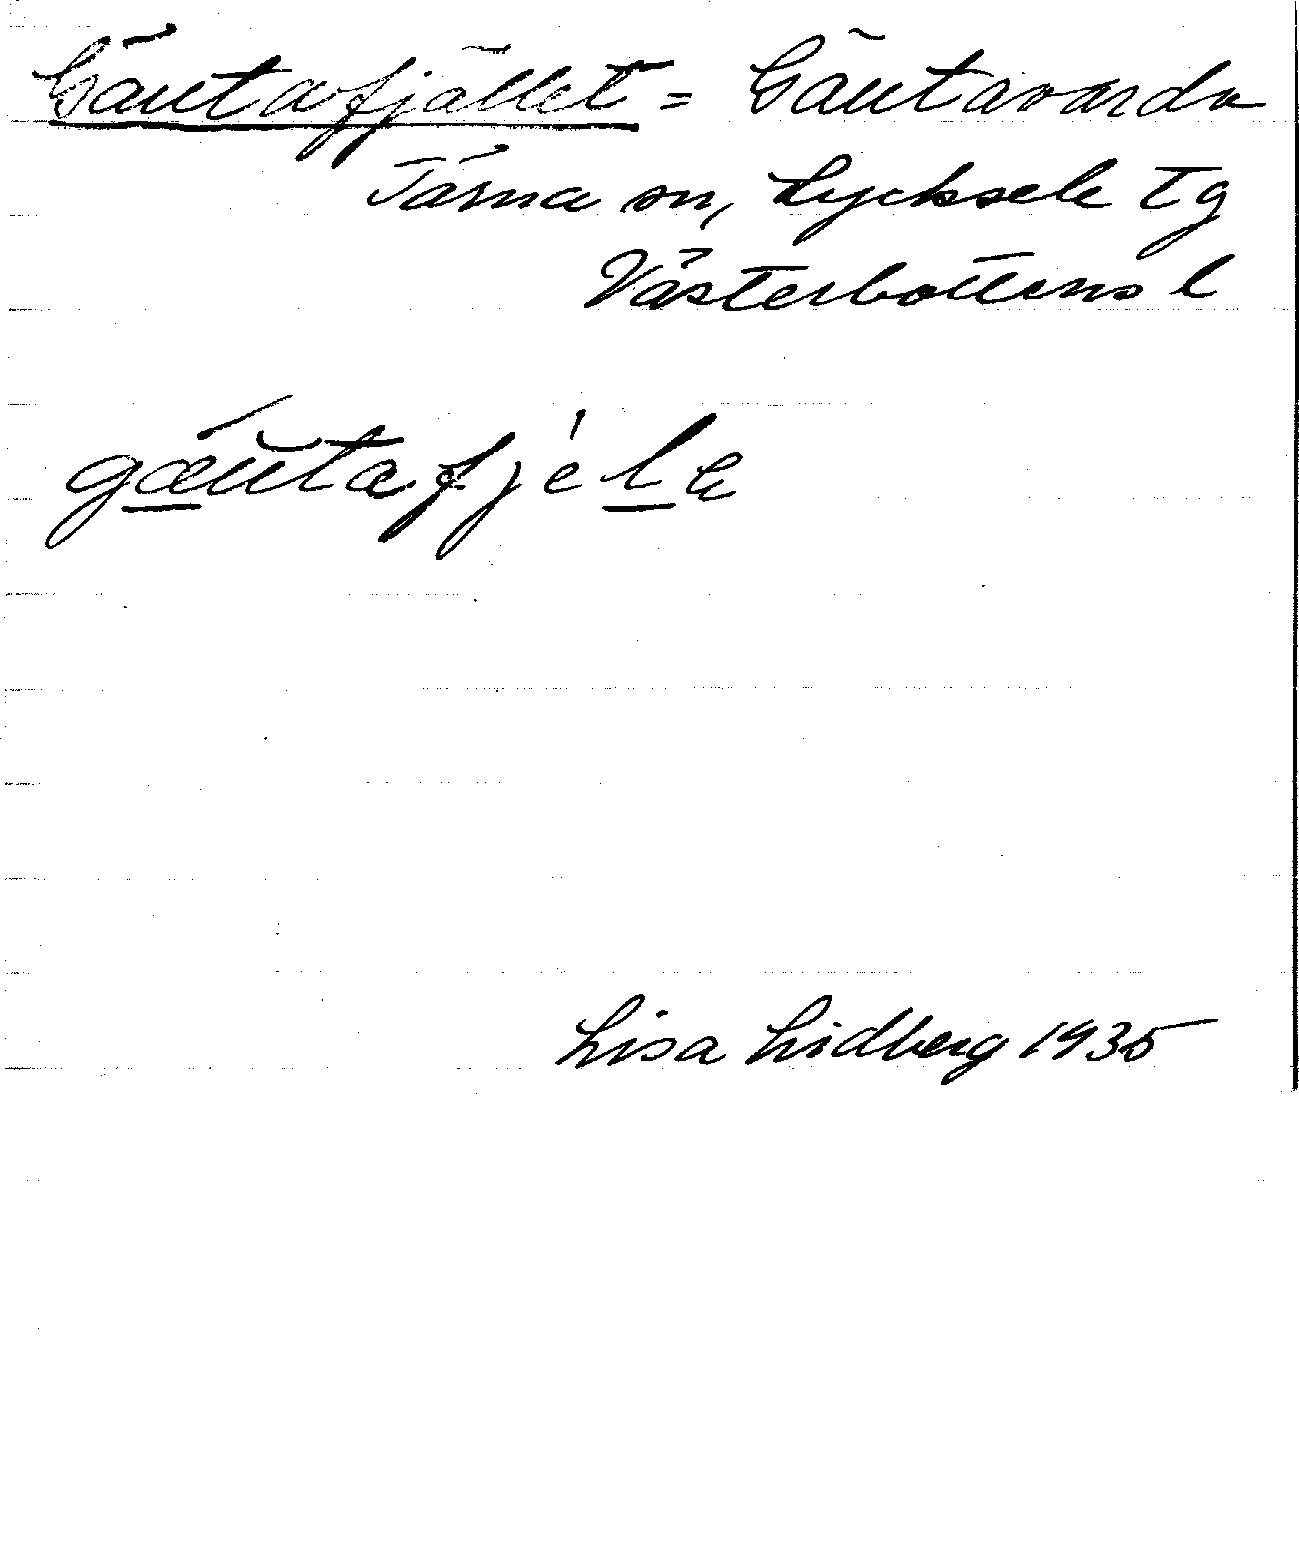 Gäutafjället = Gäutavardo
Tärna sn, Lycksele tg
Västerbottens l
gæu̯tafjele
Lisa Lidberg 1935